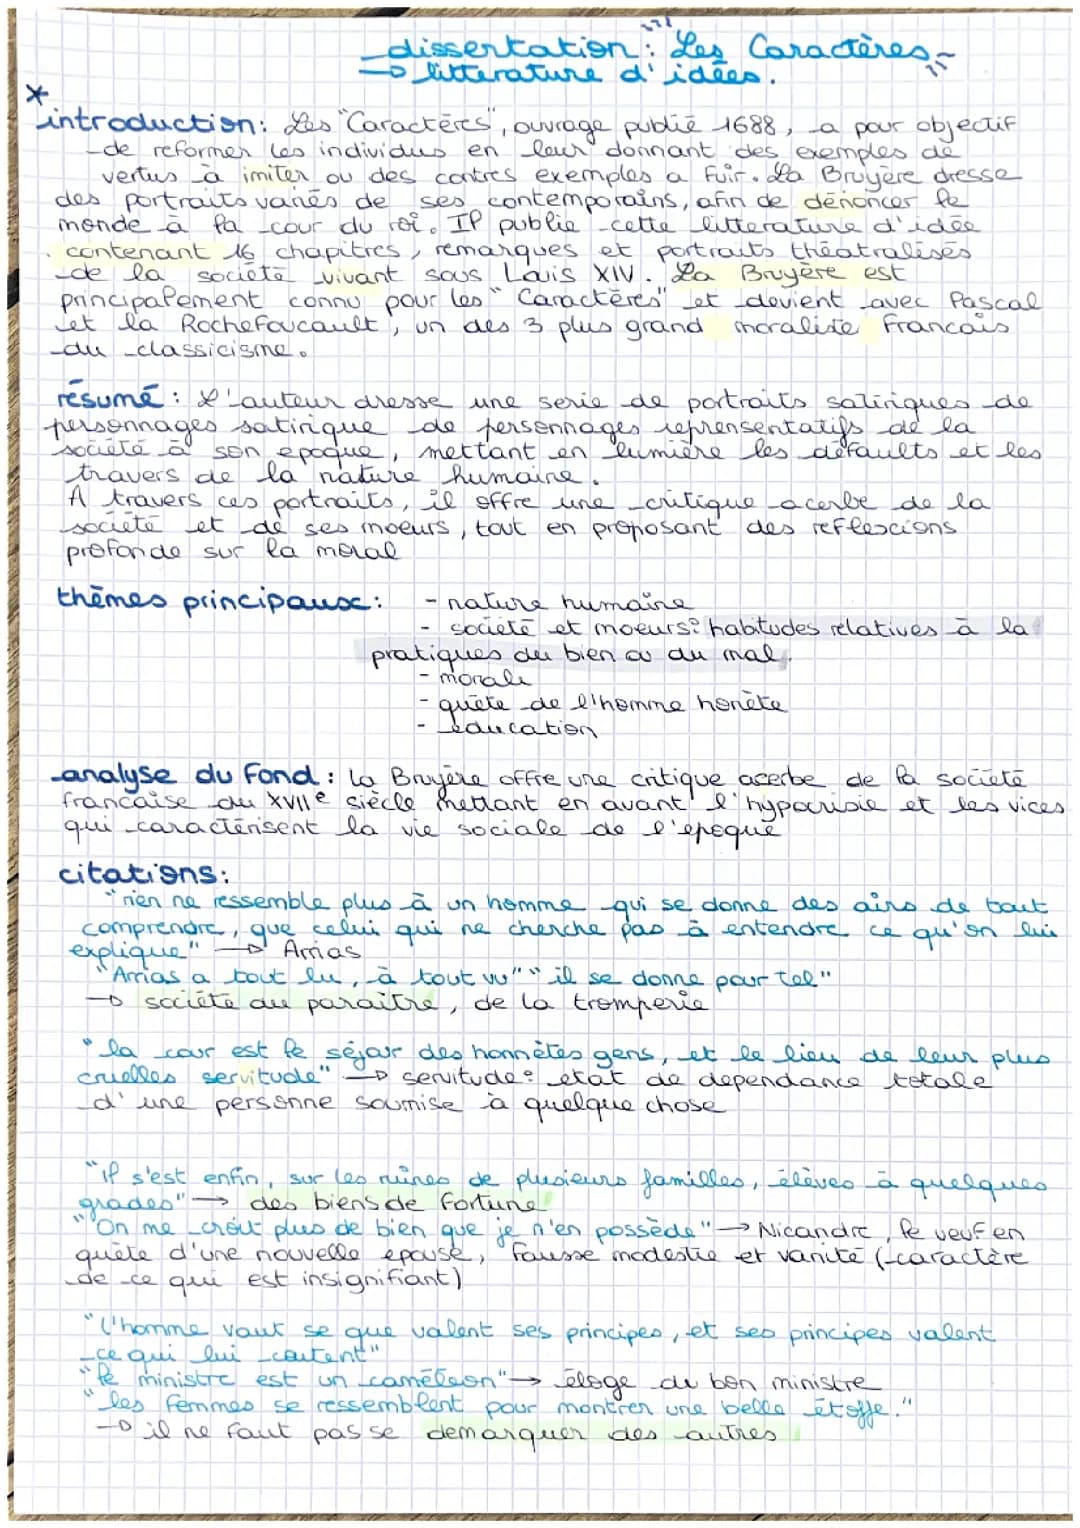 dissertation : "Les Caractères"
→ litterature d'idées.
* introduction: Les "Caractères", ouvrage publié 1688, a pour objectif
de reformer les individus en leur donnant des exemples de
vertus à imiter ou des contres exemples a fuir. La Bruyère dresse
des portraits variés de ses contemporains, afin de dénoncer le
monde à la cour du roi. Il publie cette litterature d'idée
contenant 16 chapitres, remarques et portraits théatralisés
de la société vivant sous Louis XIV. La Bruyère est
principalement connu pour les "Caractères" et devient avec Pascal
et la Rochefoucault, un des 3 plus grand moraliste Francais
du classicisme.
résumé : L'auteur dresse une serie de portraits satiriques de
personnages satirique de personnages reprensentatifs de la
société à son epoque, mettant en lumière les défaults et les
travers de la nature humaine.
A travers ces portraits, il offre une critique acerbe de la
société et de ses moeurs, tout en proposant des reflexcions
profonde sur la moral
thèmes principaux: - nature humaine
- société et moeurs: habitudes relatives à la
pratiques du bien ou du mal.
- morale
- quête de l'homme honête
- éducation
analyse du fond : La Bruyère offre une critique acerbe de la société
francaise du XVIIe siècle mettant en avant l'hypocrisie et les vices
qui caractérisent la vie sociale de l'epoque
citations:
"rien ne ressemble plus à un homme qui se donne des airs de tout
comprendre, que celui qui ne cherche pas à entendre ce qu'on lui
explique" → Arrias
"Arrias a tout lu, à tout vu" "il se donne pour tel"
→ société du paraitre, de la tromperie
"la cour est le séjour des honnêtes gens, et le lieu de leur plus
cruelles servitude" → servitude: etat de dependance totale
d'une personne soumise à quelque chose
"il s'est enfin, sur les ruines de plusieurs familles, élèves à quelques
grades" → des biens de fortune
"On me croit plus de bien que je n'en possède" → Nicandre, le veuf en
quête d'une nouvelle épouse, Fausse modestie et vanité (caractère
de ce qui est insignifiant)
"L'homme vaut se que valent ses principes, et ses principes valent
ce qui lui coutent"
"le ministre est un caméléon" → éloge du bon ministre
"les femmes se ressemblent pour montrer une belle étoffe."
→ il ne faut pas se demarquer des autres